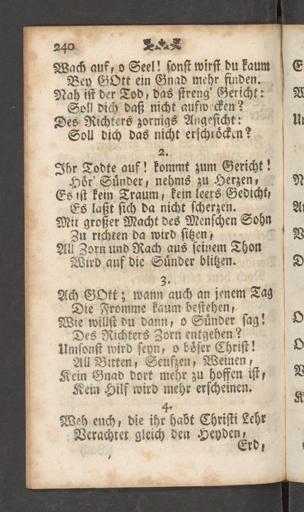 240
Wach auf, o Seel! sonst wirst du kaum
Bey GOtt ein Gnad mehr finden.
Nah ist der Tod, das streng' Gericht:
Soll dich daß nicht aufwecken?
Des Richters zornigs Angesicht:
Soll dich das nicht erschröcken?
2.
Ihr Todte auf! kommt zum Gericht!
Hör' Sünder, nehms zu Herzen,
Es ist kein Traum, kein leers Gedicht,
Es laßt sich da nicht scherzen.
Mit großer Macht des Menschen Sohn
Zu richten da wird sitzen,
All Zorn und Rach aus seinem Thon
Wird auf die Sünder blitzen.
3.
Ach GOtt; wann auch an jenem Tag
Die Fromme kaum bestehen,
Wie willst du dann, o Sünder sag!
Des Richters Zorn entgehen?
Umsonst wird seyn, o böser Christ!
All Bitten, Seufzen, Weinen,
Kein Gnad dort mehr zu hoffen ist,
Kein Hilf wird mehr erscheinen.
4.
Weh euch, die ihr habt Christi Lehr
Verachtet gleich den Heyden,
Erd,